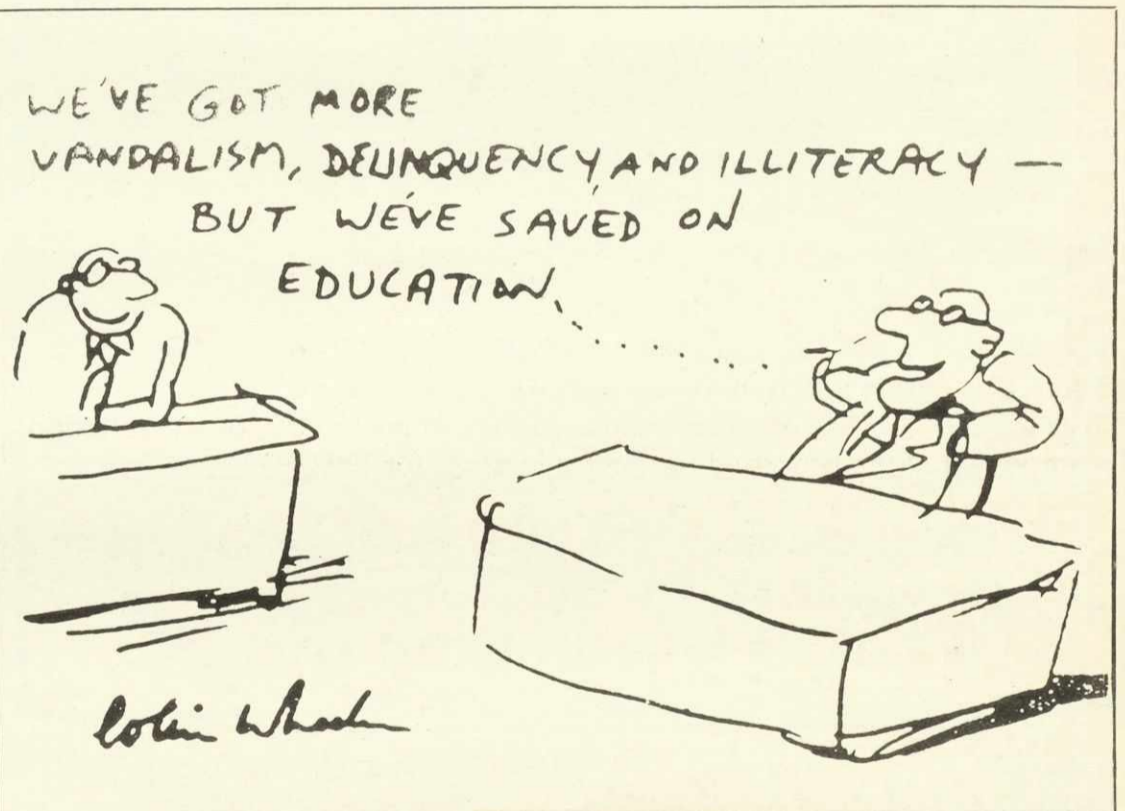 WE'VE GOT MORE
VANDALISM, DELINQUENCY, AND ILLITERACY —
BUT WE'VE SAVED ON
EDUCATION.
Colin Wheeler